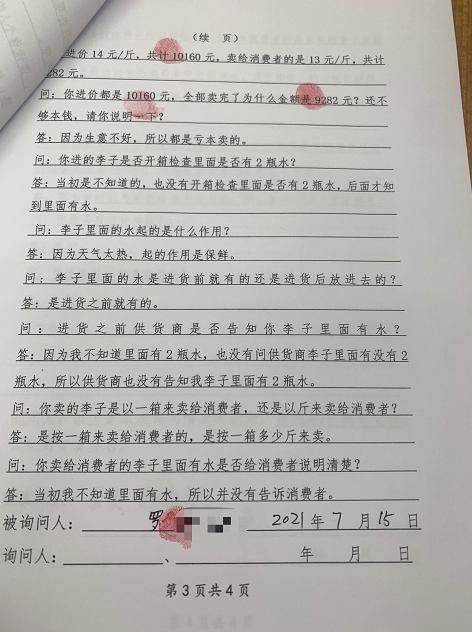 （续　页）
进价14元/斤，共计10160元，卖给消费者的是13元/斤，共计
282元。
问：你进价都是10160元，全部卖完了为什么金额是9282元？还不
够本钱，请你说明一下？
答：因为生意不好，所以都是亏本卖的。
问：你进的李子是否开箱检查里面是否有2瓶水？
答：当初是不知道的，也没有开箱检查里面是否有2瓶水，后面才知
到里面有水。
问：李子里面的水起的是什么作用？
答：因为天气太热，起的作用是保鲜。
问：李子里面的水是进货前就有的还是进货后放进去的？
答：是进货之前就有的。
问：进货之前供货商是否告知你李子里面有水？
答：因为我不知道里面有2瓶水，也没有问供货商李子里面有没有2
瓶水，所以供货商也没有告知我李子里面有2瓶水。
问：你卖的李子是以一箱来卖给消费者，还是以斤来卖给消费者？
答：是按一箱来卖给消费者的，是按一箱多少斤来卖。
问：你卖给消费者的李子里面有水是否给消费者说明清楚？
答：当初我不知道里面有水，所以并没有告诉消费者。
被询问人：罗 2021年7月15日
询问人：、 年 月 日
第3页共4页